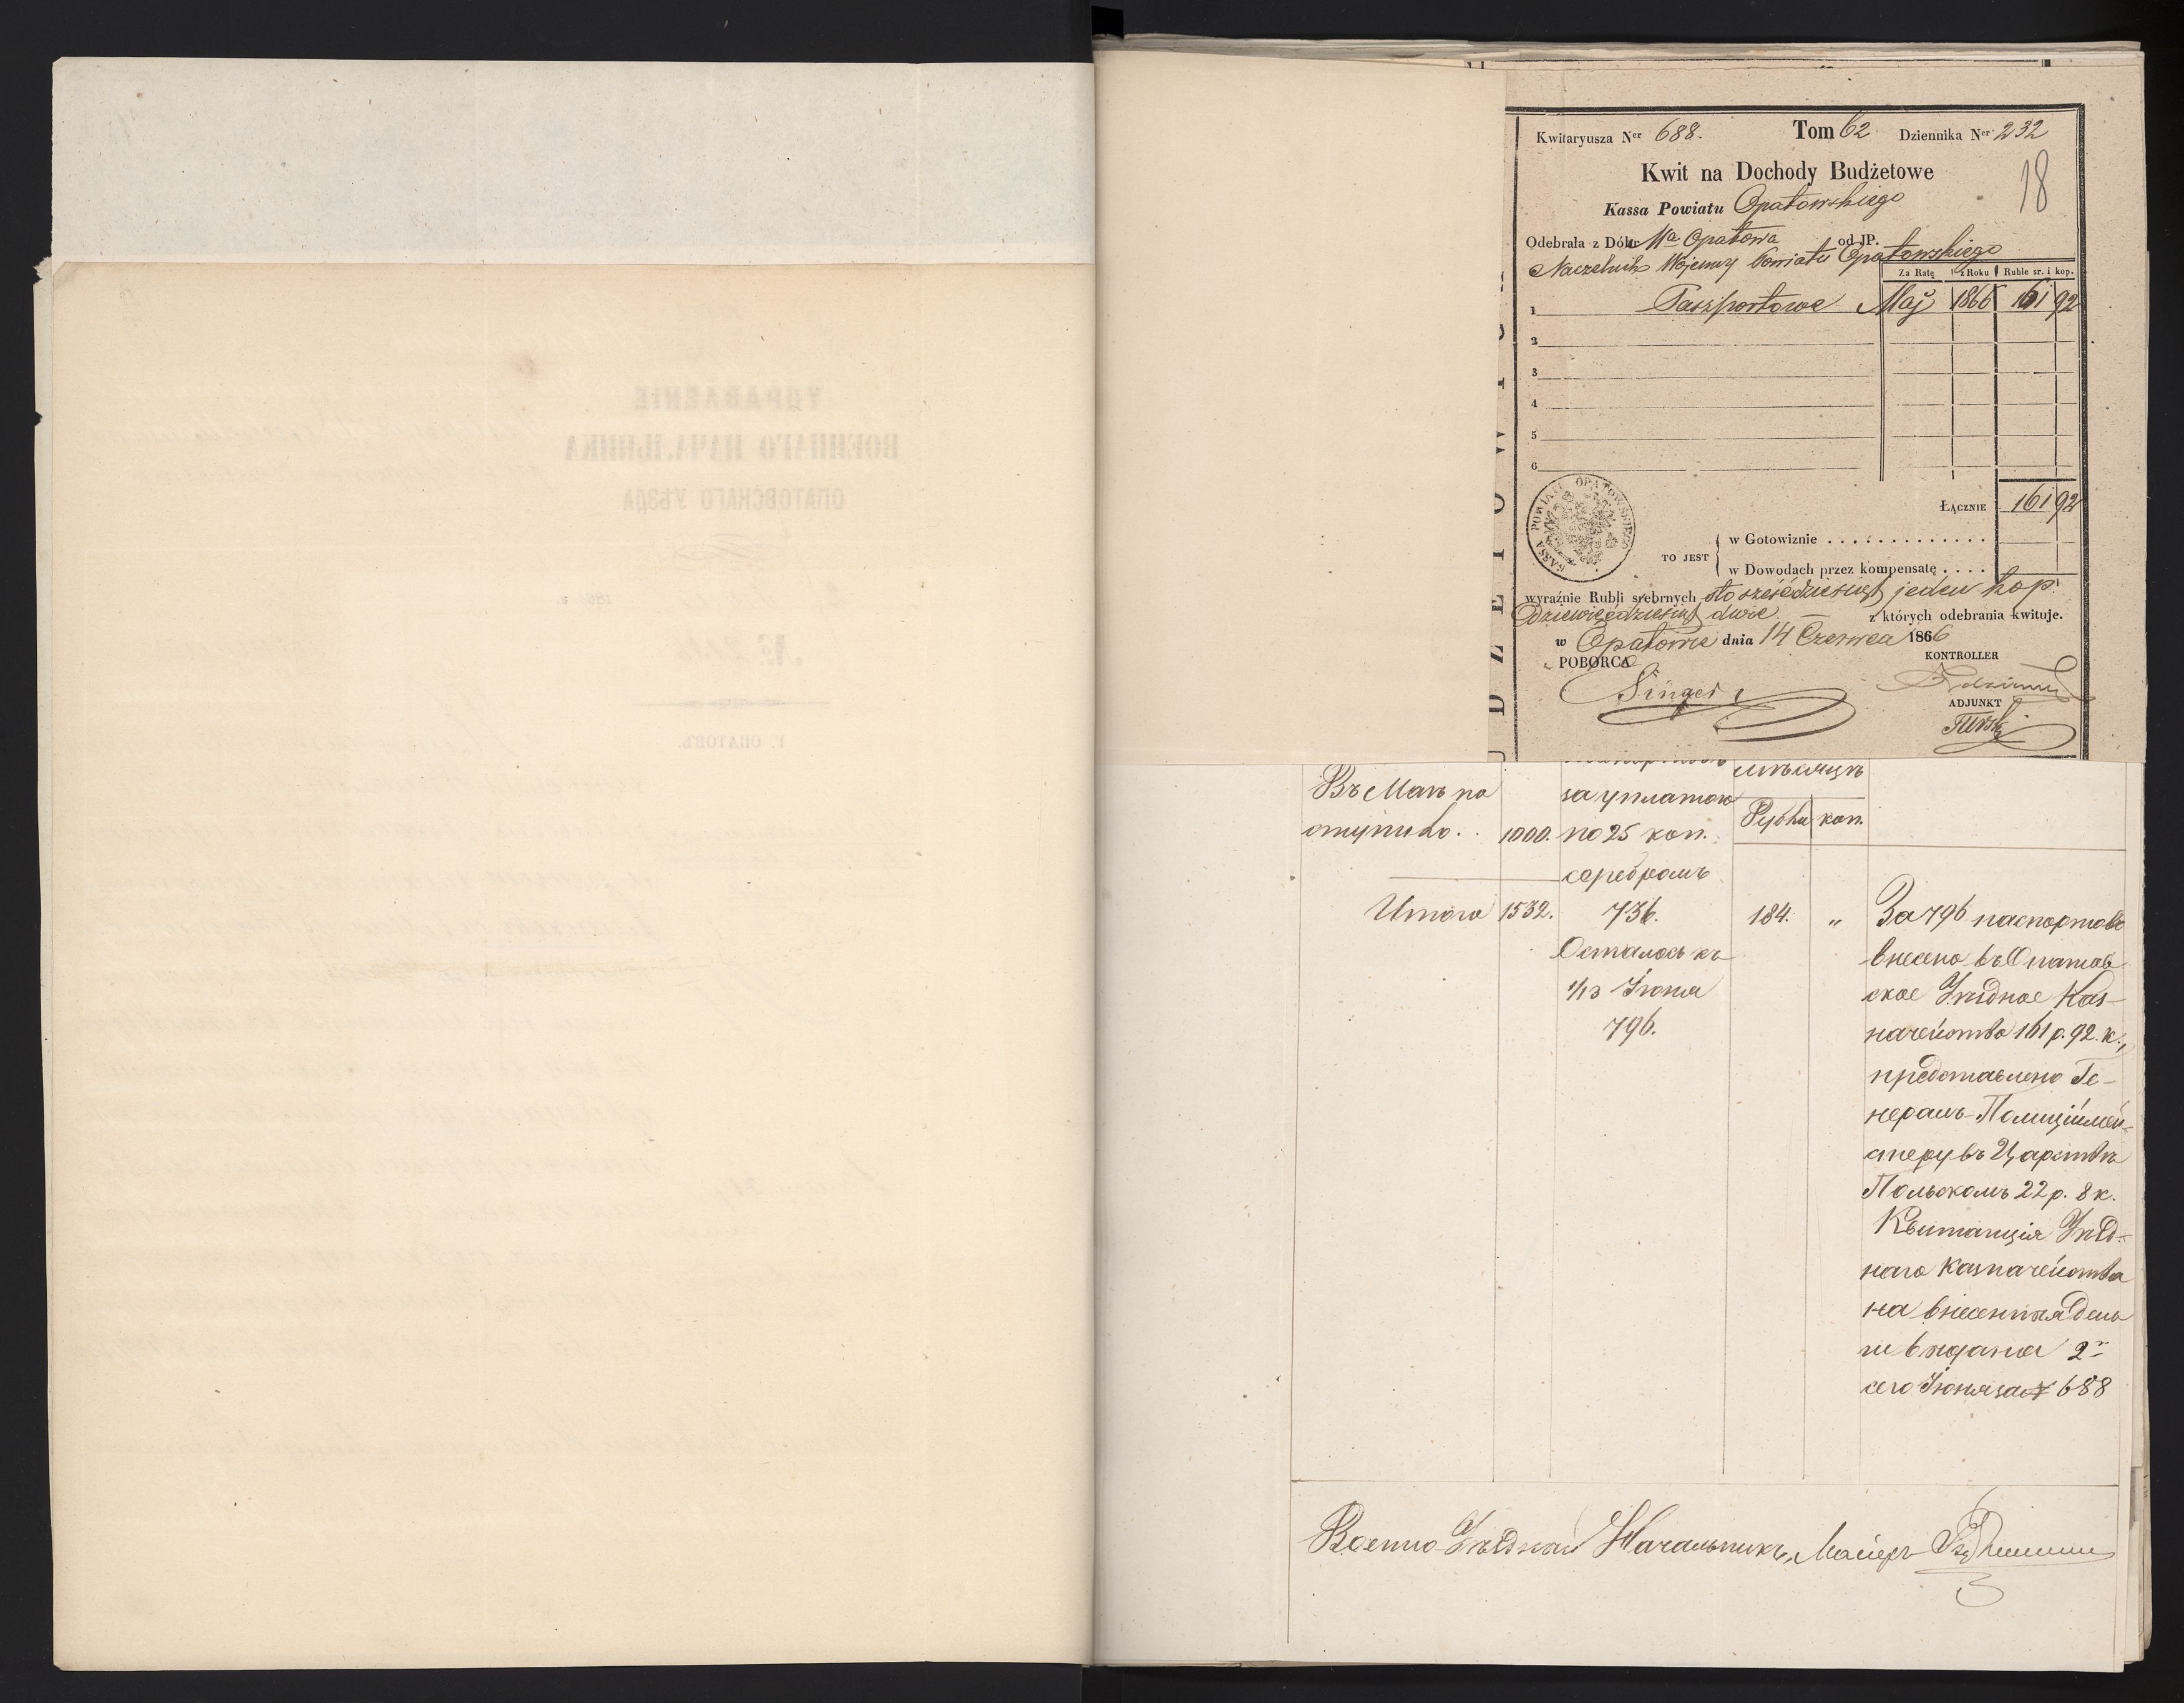 Kwitaryusza Ner 688. Tom 62 Dziennika Ner 232
18
Kwit na Dochody Budżetowe
Kassa Powiatu Opatowskiego
Odebrała z Dóbr Ma Opatowa od JP.
Naczelnik Wojenny Powiatu Opatowskiego
Za Ratę z Roku Ruble sr. i kop.
1 Paszportowe Maj 1866 161 92
2
3
4
5
6
KASSA POWIATU OPATOWSKIEGO
Łącznie 161 92
w Gotowiznie
TO JEST
w Dowodach przez kompensatę
wyraźnie Rubli srebrnych sto sześćdziesiąt jeden kop.
Dziewięćdziesiąt dwie. — z których odebrania kwituje.
w Opatowie dnia 14 Czerwca 1866
POBORCA KONTROLLER
Singer
ADJUNKT
Въ Маѣ по
ступило. 1000.
за уплатою
по 25 коп.
серебромъ
мѣсяцъ
Рубли коп.
Итого 1532. 736. 184. „
Осталось къ
1/13 Іюня
796.
За 796 паспортовъ
внесено въ Опатов
ское Уѣздное Каз-
начейство 161 р. 92. к.,
представлено Ге-
нералъ-Полиціймей-
стеру въ Царствѣ
Польскомъ 22 р. 8 к.
Квитанція Уѣзд-
наго Казначейства
на внесенныя день
ги выдана 2го
сего Іюня за № 688
Военно-Уѣздный Начальникъ, Маіоръ
УПРАВЛЕНІЕ
ВОЕННАГО НАЧАЛЬНИКА
ОПАТОВСКАГО УѢЗДА
186 г.
Г. ОПАТОВЪ.